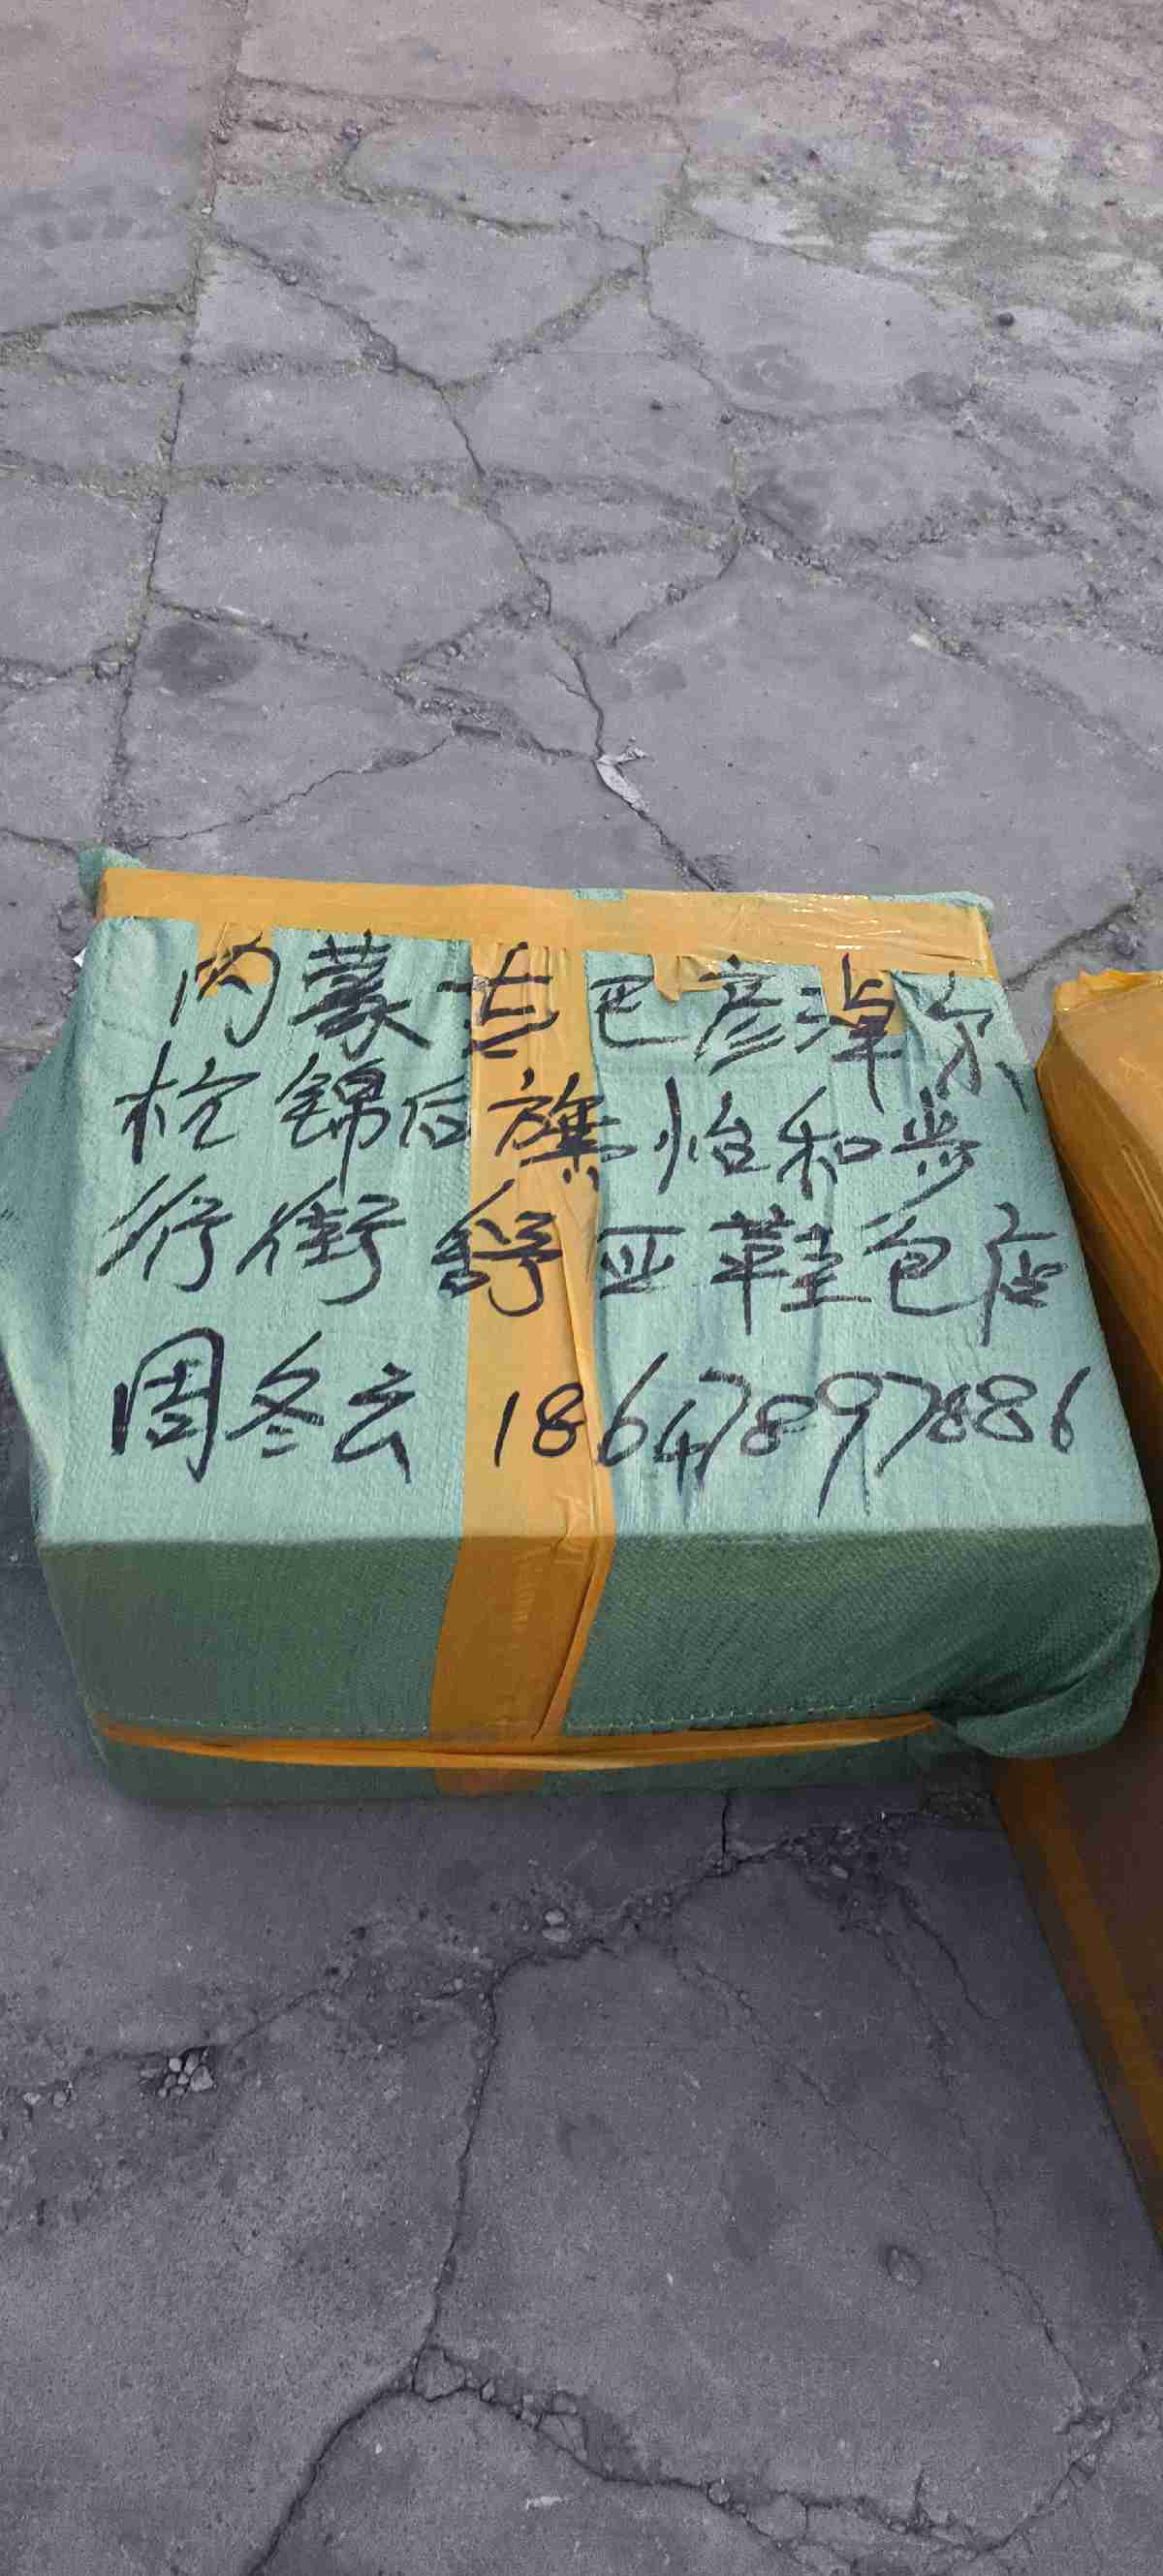 内蒙古巴彦淖尔
杭锦后旗怡和步
行街舒亚鞋包店
周冬云 18647897886